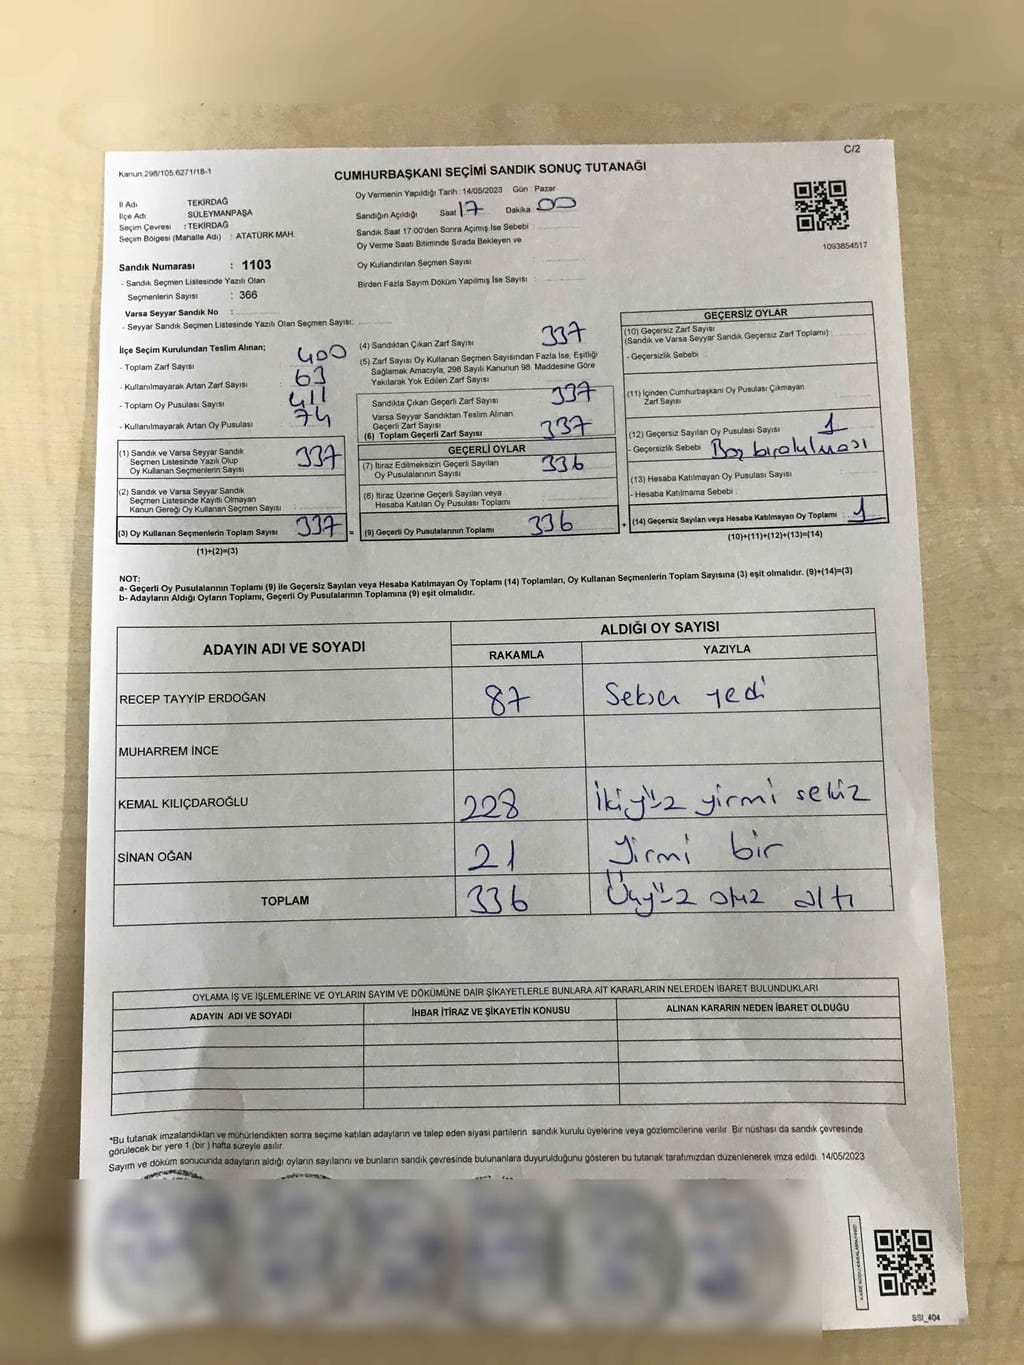 C/2
Kanun.298/105.6271/18-1
CUMHURBAŞKANI SEÇİMİ SANDIK SONUÇ TUTANAĞI
İl Adı TEKİRDAĞ
İlçe Adı SÜLEYMANPAŞA
Seçim Çevresi : TEKİRDAĞ
Seçim Bölgesi (Mahalle Adı) : ATATÜRK MAH.
Oy Vermenin Yapıldığı Tarih : 14/05/2023 Gün : Pazar
Sandığın Açıldığı Saat 17 Dakika 00
Sandık Saat 17:00'den Sonra Açımış İse Sebebi :
Oy Verme Saati Bitiminde Sırada Bekleyen ve
Oy Kullandırılan Seçmen Sayısı :
Birden Fazla Sayım Döküm Yapılmış İse Sayısı :
1093854517
Sandık Numarası : 1103
- Sandık Seçmen Listesinde Yazılı Olan
Seçmenlerin Sayısı : 366
Varsa Seyyar Sandık No :
- Seyyar Sandık Seçmen Listesinde Yazılı Olan Seçmen Sayısı:
İlçe Seçim Kurulundan Teslim Alınan;
- Toplam Zarf Sayısı 400
- Kullanılmayarak Artan Zarf Sayısı : 63
- Toplam Oy Pusulası Sayısı : 411
- Kullanılmayarak Artan Oy Pusulası : 74
(1) Sandık ve Varsa Seyyar Sandık
Seçmen Listesinde Yazılı Olup
Oy Kullanan Seçmenlerin Sayısı 337
(2) Sandık ve Varsa Seyyar Sandık
Seçmen Listesinde Kayıtlı Olmayan
Kanun Gereği Oy Kullanan Seçmen Sayısı
(3) Oy Kullanan Seçmenlerin Toplam Sayısı : 337 =
(1)+(2)=(3)
(4) Sandıktan Çıkan Zarf Sayısı 337
(5) Zarf Sayısı Oy Kullanan Seçmen Sayısından Fazla İse, Eşitliği
Sağlamak Amacıyla, 298 Sayılı Kanunun 98. Maddesine Göre
Yakılarak Yok Edilen Zarf Sayısı
Sandıkta Çıkan Geçerli Zarf Sayısı 337
Varsa Seyyar Sandıktan Teslim Alınan
Geçerli Zarf Sayısı
(6) Toplam Geçerli Zarf Sayısı 337
GEÇERLİ OYLAR
(7) İtiraz Edilmeksizin Geçerli Sayılan
Oy Pusulasının Sayısı 336
(8) İtiraz Üzerine Geçerli Sayılan veya
Hesaba Katılan Oy Pusulası Toplamı
(9) Geçerli Oy Pusulalarının Toplamı 336 +
GEÇERSİZ OYLAR
(10) Geçersiz Zarf Sayısı
(Sandık ve Varsa Seyyar Sandık Geçersiz Zarf Toplamı) :
- Geçersizlik Sebebi :
(11) İçinden Cumhurbaşkanı Oy Pusulası Çıkmayan
Zarf Sayısı
(12) Geçersiz Sayılan Oy Pusulası Sayısı 1
- Geçersizlik Sebebi Boş bırakılması
(13) Hesaba Katılmayan Oy Pusulası Sayısı
- Hesaba Katılmama Sebebi :
(14) Geçersiz Sayılan veya Hesaba Katılmayan Oy Toplamı : 1
(10)+(11)+(12)+(13)=(14)
NOT:
a- Geçerli Oy Pusulalarının Toplamı (9) ile Geçersiz Sayılan veya Hesaba Katılmayan Oy Toplamı (14) Toplamları, Oy Kullanan Seçmenlerin Toplam Sayısına (3) eşit olmalıdır. (9)+(14)=(3)
b- Adayların Aldığı Oyların Toplamı, Geçerli Oy Pusulalarının Toplamına (9) eşit olmalıdır.
ADAYIN ADI VE SOYADI ALDIĞI OY SAYISI
RAKAMLA YAZIYLA
RECEP TAYYİP ERDOĞAN 87 Seksen yedi
MUHARREM İNCE
KEMAL KILIÇDAROĞLU 228 İkiyüz yirmi sekiz
SİNAN OĞAN 21 Yirmi bir
TOPLAM 336 Üçyüz otuz altı
OYLAMA İŞ VE İŞLEMLERİNE VE OYLARIN SAYIM VE DÖKÜMÜNE DAİR ŞİKAYETLERLE BUNLARA AİT KARARLARIN NELERDEN İBARET BULUNDUKLARI
ADAYIN ADI VE SOYADI İHBAR İTİRAZ VE ŞİKAYETİN KONUSU ALINAN KARARIN NEDEN İBARET OLDUĞU
*Bu tutanak imzalandıktan ve mühürlendikten sonra seçime katılan adayların ve talep eden siyasi partilerin sandık kurulu üyelerine veya gözlemcilerine verilir. Bir nüshası da sandık çevresinde
görülecek bir yere 1 (bir) hafta süreyle asılır.
Sayım ve döküm sonucunda adayların aldığı oyların sayılarını ve bunların sandık çevresinde bulunanlara duyurulduğunu gösteren bu tutanak tarafımızdan düzenlenerek imza edildi. 14/05/2023
SSI_404